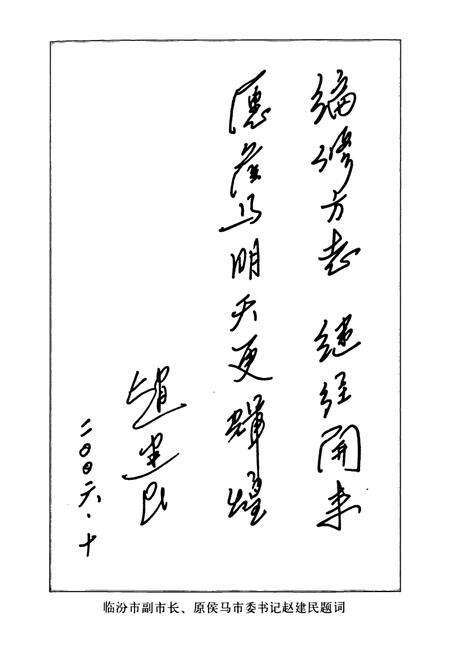 编修方志 继往开来
愿侯马明天更辉煌
趙建民
二〇〇六·十
临汾市副市长、原侯马市委书记赵建民题词